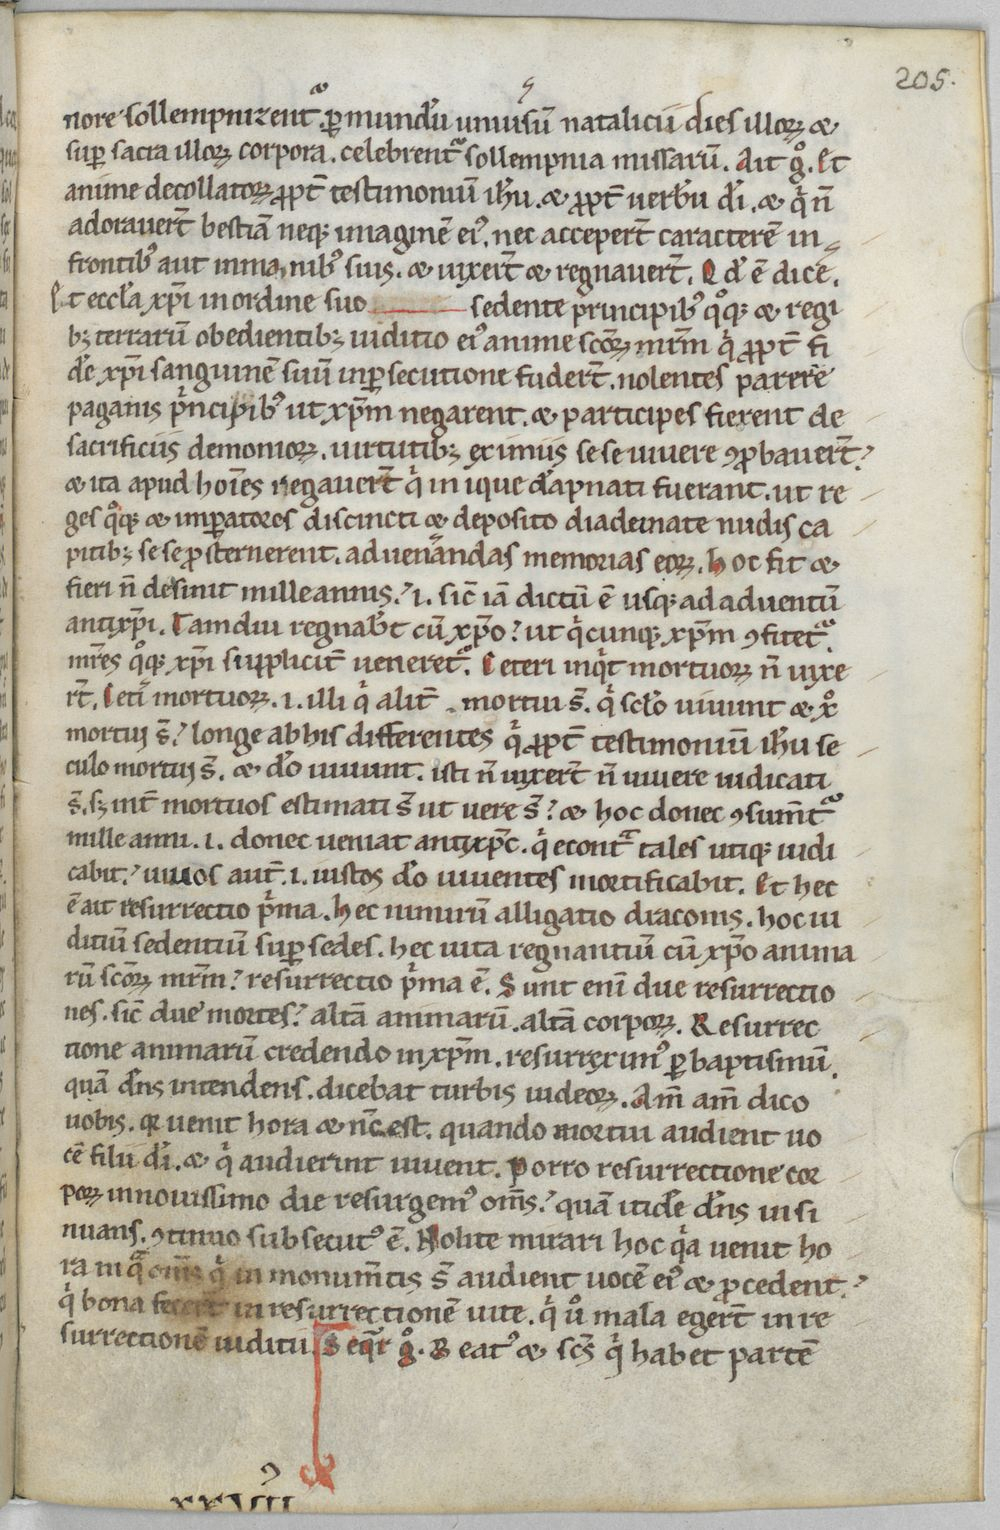 205.
nore sollempnizent᷑ ꝑ mundū uniuersū natalicii dies illoꝝ &
suꝑ sacra illoꝝ corpora. celebrent᷑ sollempnia missarū. Ait g°. Et
anime decollatoꝝ ꝓpt̄ testimoniū ih̄u. & ꝓpt̄ uerbū dī. & qͥ n̄
adorauer̄t bestiā neqꝫ imaginē eiꝰ. nec acceper̄t caracterē in
frontibꝰ aut in manibꝰ suis. & uixer̄t & regnauer̄t. Qd̄ ē dice.
Et eccl̄a xp̄i in ordine suo sedente principibꝰ q°qꝫ & regi
bꝫ terrarū obedientibꝫ iuditio eiꝰ anime sc̄oꝝ mr̄m qͥ ꝓpt̄ fi
dē xp̄i sanguinē suū in ꝑsecutione fuder̄t. nolentes parere
paganis pͥncipibꝰ ut xp̄m negarent. & participes fierent de
sacrificiis demonioꝝ. uirtutibꝫ eximiis sese uiuere ꝯꝓbauer̄t.
& ita apud hoīes regnauer̄t qͥ inique dāpnati fuerant. ut re
ges q°qꝫ & imꝑatores discincti & deposito diademate nudis ca
pitibꝫ sese ꝓsternerent. ad uenerandas memorias eoꝝ. hoc fit &
fieri n̄ desinit mille annis. .i. sic̄ iā dictū ē usqꝫ ad aduentū
antixp̄i. Tamdiu regnab̄t cū xp̄o? ut qͥcunqꝫ xp̄m ꝯfitet᷑.
mr̄es q°qꝫ xp̄i suppliciť ueneret᷑. Ceteri inqͥt mortuoꝝ n̄ uixe
rt̄. Cetī mortuoꝝ .i. illi qͥ alit̄ mortui s̄. qͥ sc̄lo uiuunt & x°
mortui s̄? longe ab his differentes qͥ ꝓpt̄ testimoniū ih̄u se
culo mortui s̄. & d̄o uiuunt. isti n̄ uixer̄t n̄ uiuere iudicati
s̄. sꝫ int̄ mortuos estimati s̄ ut uere s̄? & hoc donec ꝯsum̄t᷑
mille anni .i. donec ueniat antixp̄c. qͥ econt̄ᵃ tales utiqꝫ iudi
cabit? uiuos aut̄ .i. iustos d̄o uiuentes mortificabit. Et hec
ē ait resurrectio pͥma. hec nimirū alligatio draconis. hoc iu
ditiū sedentiū suꝑ sedes. hec uita regnantiū cū xp̄o anima
rū sc̄oꝝ mr̄m? resurrectio pͥma ē. Sunt eni due resurrectio
nes. sic̄ due mortes? altā animarū. altā corpoꝝ. Resurrec
tione animarū credendo in xp̄m. resurreximꝰ ꝑ baptismū.
quā dn̄s intendens. dicebat turbis iudeoꝝ. Am̄ am̄ dico
uobis. qꝛ uenit hora & nc̄ est. quando mortui audient uo
cē filii dī. & qͥ audierint uiuent. Porro resurrectione cor
poꝝ in nouissimo die resurgemꝰ om̄s? quā itidē dn̄s insi
nuans. ꝯtinuo subsecutꝰ ē. Nolite mirari hoc qͥa uenit ho
ra in qᵃ om̄s qͥ in monum̄tis s̄ audient uocē eiꝰ & ꝓcedent?
qͥ bona fecer̄t in resurrectionē uite. qͥ u° mala eger̄t in re
surrectionē iuditii. Seqͥt g°. Beatꝰ & sc̄s qͥ habet partē
XXVIII